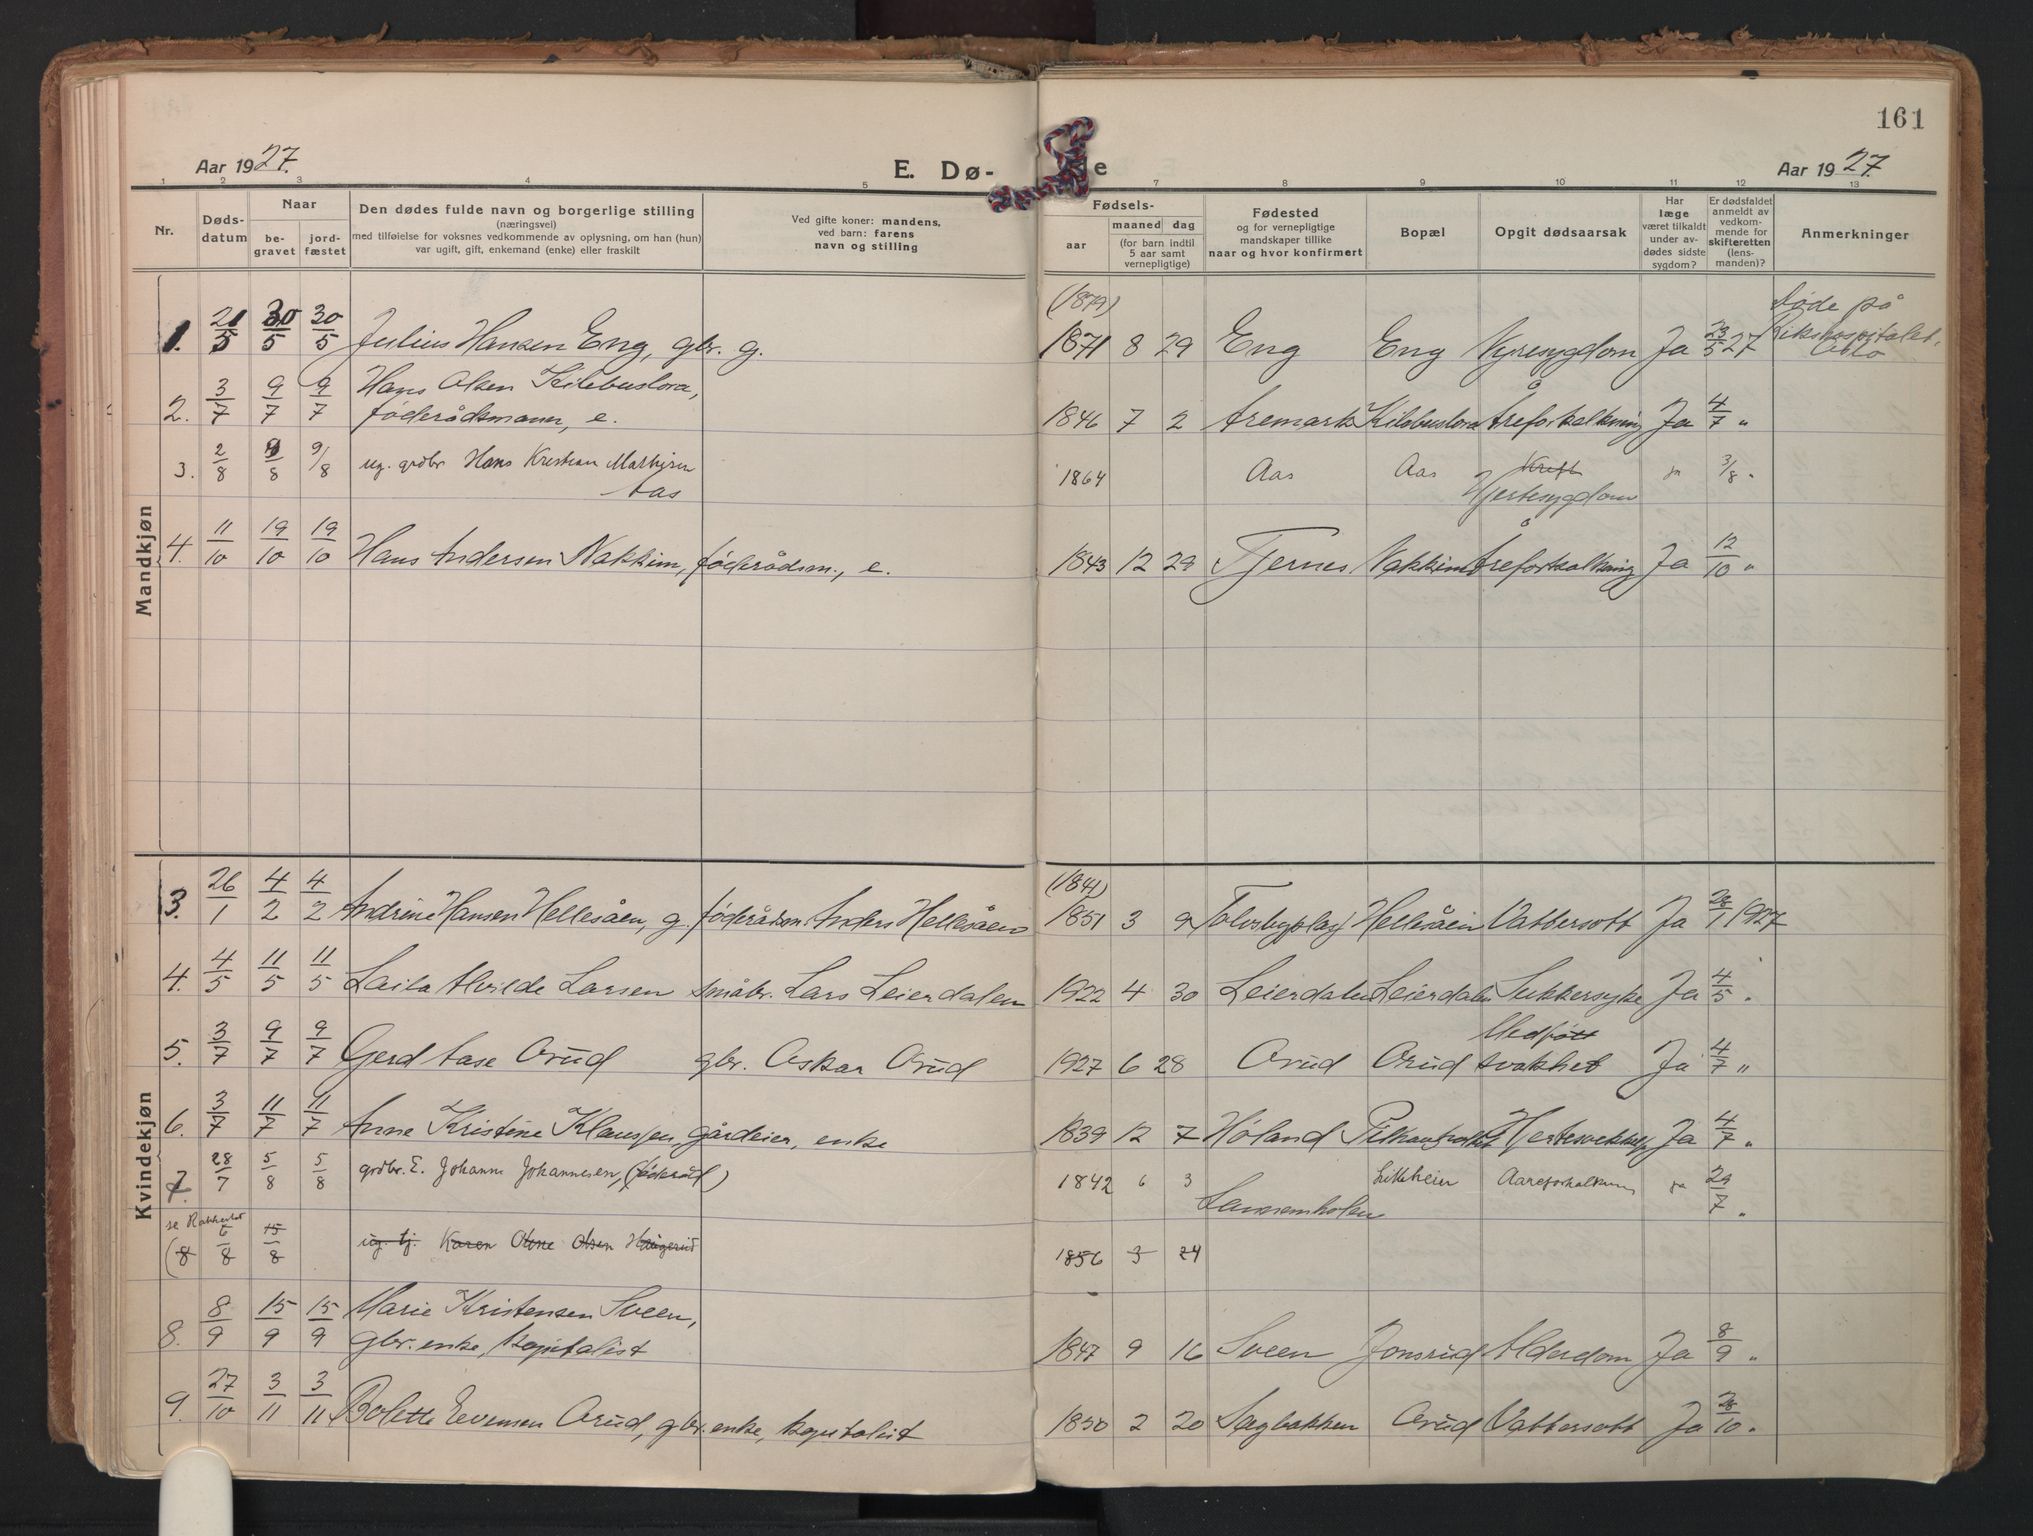 161
Aar 1927.
E. Dø-
de
Aar 1927.
1 2 3 4 5 7 8 9 10 11 12 13
Nr.
Døds-
datum
Naar
be-
gravet
jord-
fæstet
Den dødes fulde navn og borgerlige stilling
(næringsvei)
med tilføielse for voksnes vedkommende av oplysning, om han (hun)
var ugift, gift, enkemand (enke) eller fraskilt
Ved gifte koner: mandens,
ved barn: farens
navn og stilling
Fødsels-
aar
maaned dag
(for barn indtil
5 aar samt
vernepligtige)
Fødested
og for vernepligtige
mandskaper tillike
naar og hvor konfirmert
Bopæl
Opgit dødsaarsak
Har
læge
været tilkaldt
under av-
dødes sidste
sygdom?
Er dødsfaldet
anmeldt av
vedkom-
mende for
skifteretten
(lens-
manden)?
Anmerkninger
Mandkjøn
(1879) Døde på
1. 21/5 30/5 30/5 Julius Hansen Eng, gbr. g. 1871 8 29 Eng Eng Nyresygdom Ja 23/5 27 Rikshospitalet, Oslo
2. 3/7 9/7 9/7 Hans Olsen Kilebuslora,
føderådsmann, e. 1846 7 2 Aremark Kilebuslora Åreforkalkning Ja 4/7 "
3. 2/8 9/8 9/8 ug. grdbr Hans Kristian Mathisen
Aas 1864 Aas Aas Kreft Hjertesygdom ja 3/8 "
4. 11/10 19/10 19/10 Hans Andersen Nakkim, føderådsm., e. 1843 12 29 Tjernes Nakkim Åreforkalkning Ja 12/10 "
Kvindekjøn
(1841)
3. 26/1 4/2 4/2 Andrine Hansen Hellesåen, g. føderådsm. Anders Hellesåen 1851 3 9 Hellesåen Vattersott Ja 28/1 1927
4. 4/5 11/5 11/5 Laila Alvilde Larsen småbr. Lars Leierdalen 1922 4 30 Leierdalen Leierdalen Sukkersyke Ja 4/5 "
5. 3/7 9/7 9/7 Gerd Aase Orud gbr. Oskar Orud 1927 6 28 Orud Orud Medfött svakhet Ja 4/7 "
6. 3/7 11/7 11/7 Anne Kristine Klausen, gårdeier, enke 1839 12 7 Høland Hjertesvekkelse Ja 4/7 "
7. 28/7 5/8 5/8 grdbr. E. Johanne Johannesen, (føderåd) 1842 6 3 Lannemholen Likheim Aareforkalkning ja 29/7 "
se Rakkestad
(8 6/8 15/8 ug. tj. Karen Oline Olsen Haugerud 1856 3 24
8. 8/9 15/9 15/9 Marie Kristensen Sveen,
gbr. enke, kapitalist 1847 9 16 Sveen Jonsrud Alderdom Ja 8/9 "
9. 27/10 3/11 3/11 Bolette Evensen Orud, gbr. enke, kapitalist 1850 2 20 Sagbakken Orud Vattersott Ja 28/10 "